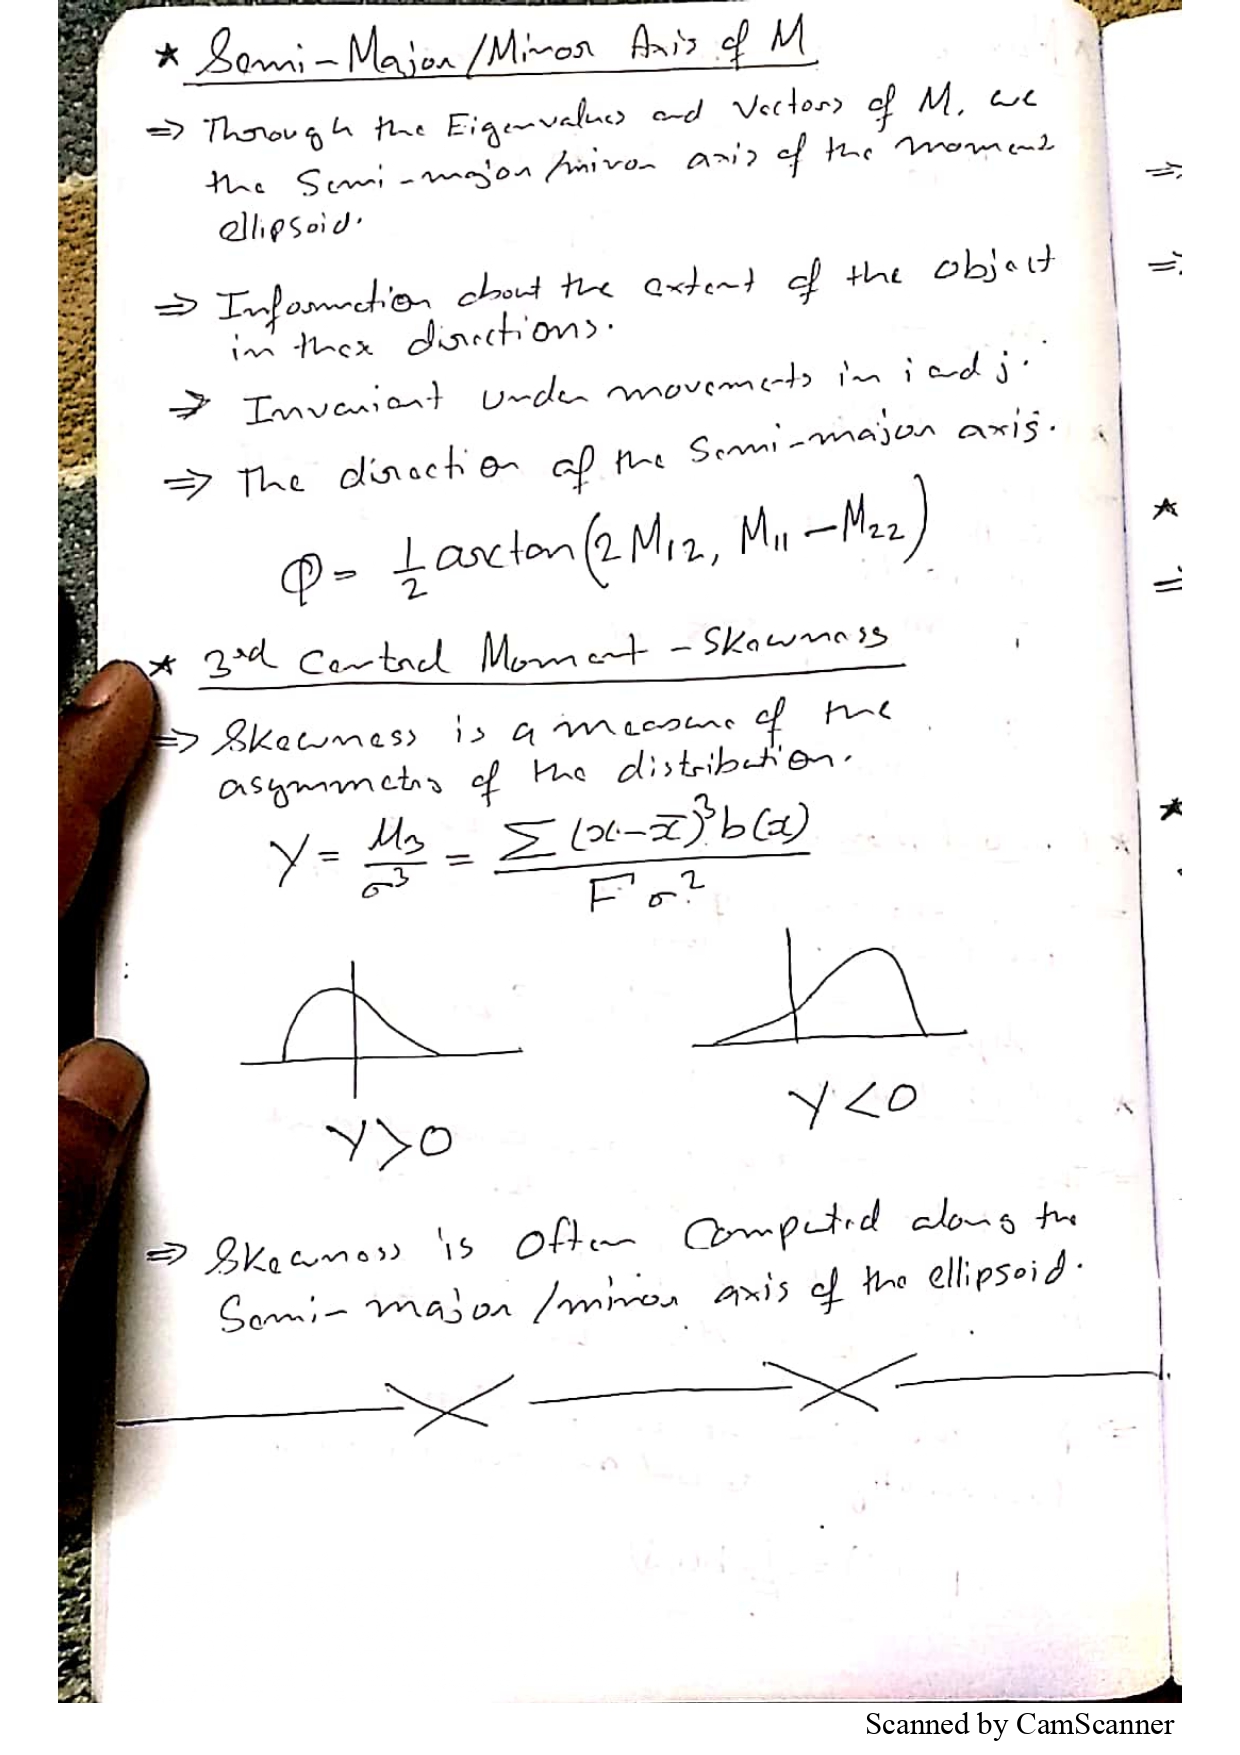 * Semi-Major/Minor Axis of M
⇒ Through the Eigenvalues and Vectors of M, we
the Semi-major/minor axis of the moment
ellipsoid.
⇒ Information about the extent of the object
in thex directions.
⇒ Invariant under movements in i and j.
⇒ The direction of the Semi-major axis.
φ = 1/2 arctan(2M12, M11 - M22)
* 3rd Central Moment - Skewness
⇒ Skewness is a measure of the
asymmetry of the distribution.
γ = μ3/σ^3 = Σ(x-x̄)^3 b(x) / F σ^2
γ>0
γ<0
⇒ Skewness is Often Computed along the
Semi-major/minor axis of the ellipsoid.
Scanned by CamScanner